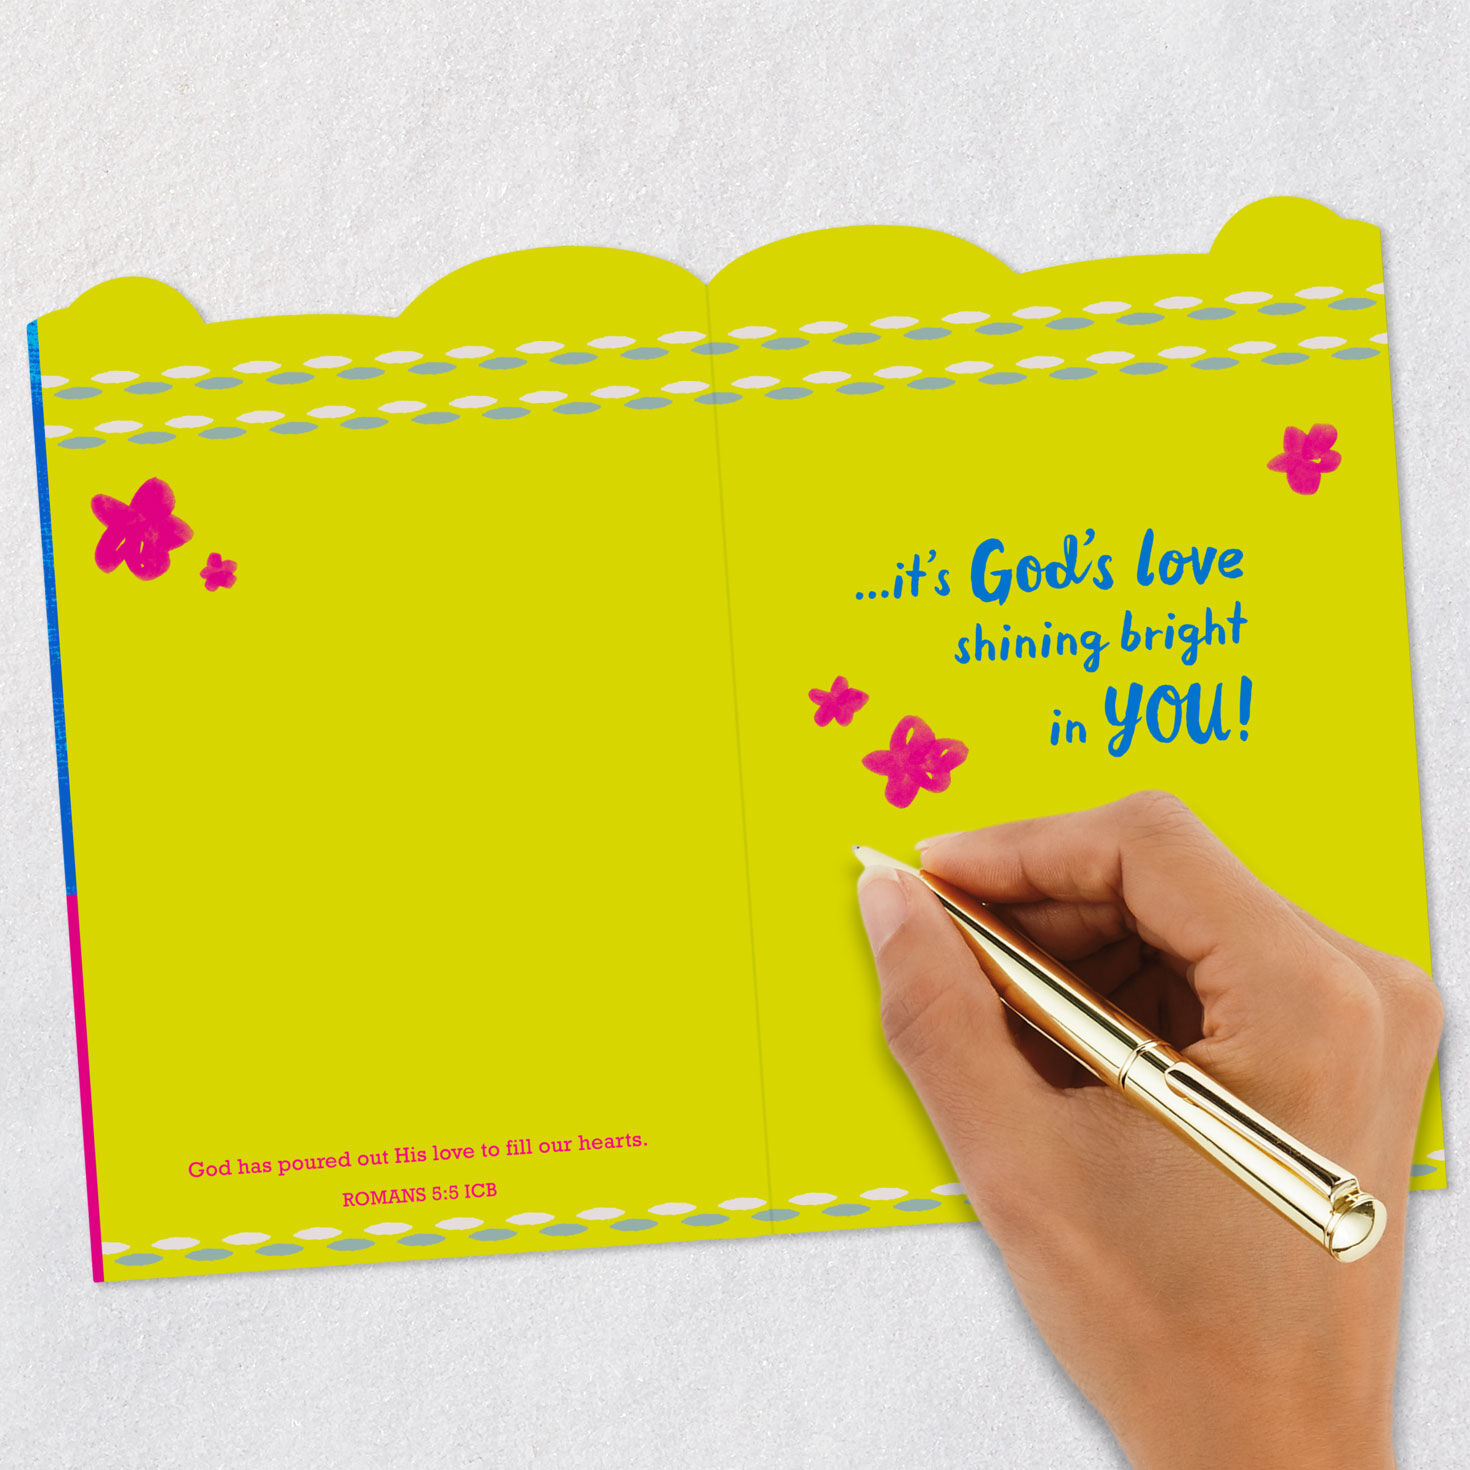 God has poured out His love to fill our hearts.
ROMANS 5:5 ICB
...it's God's love
shining bright
in YOU!